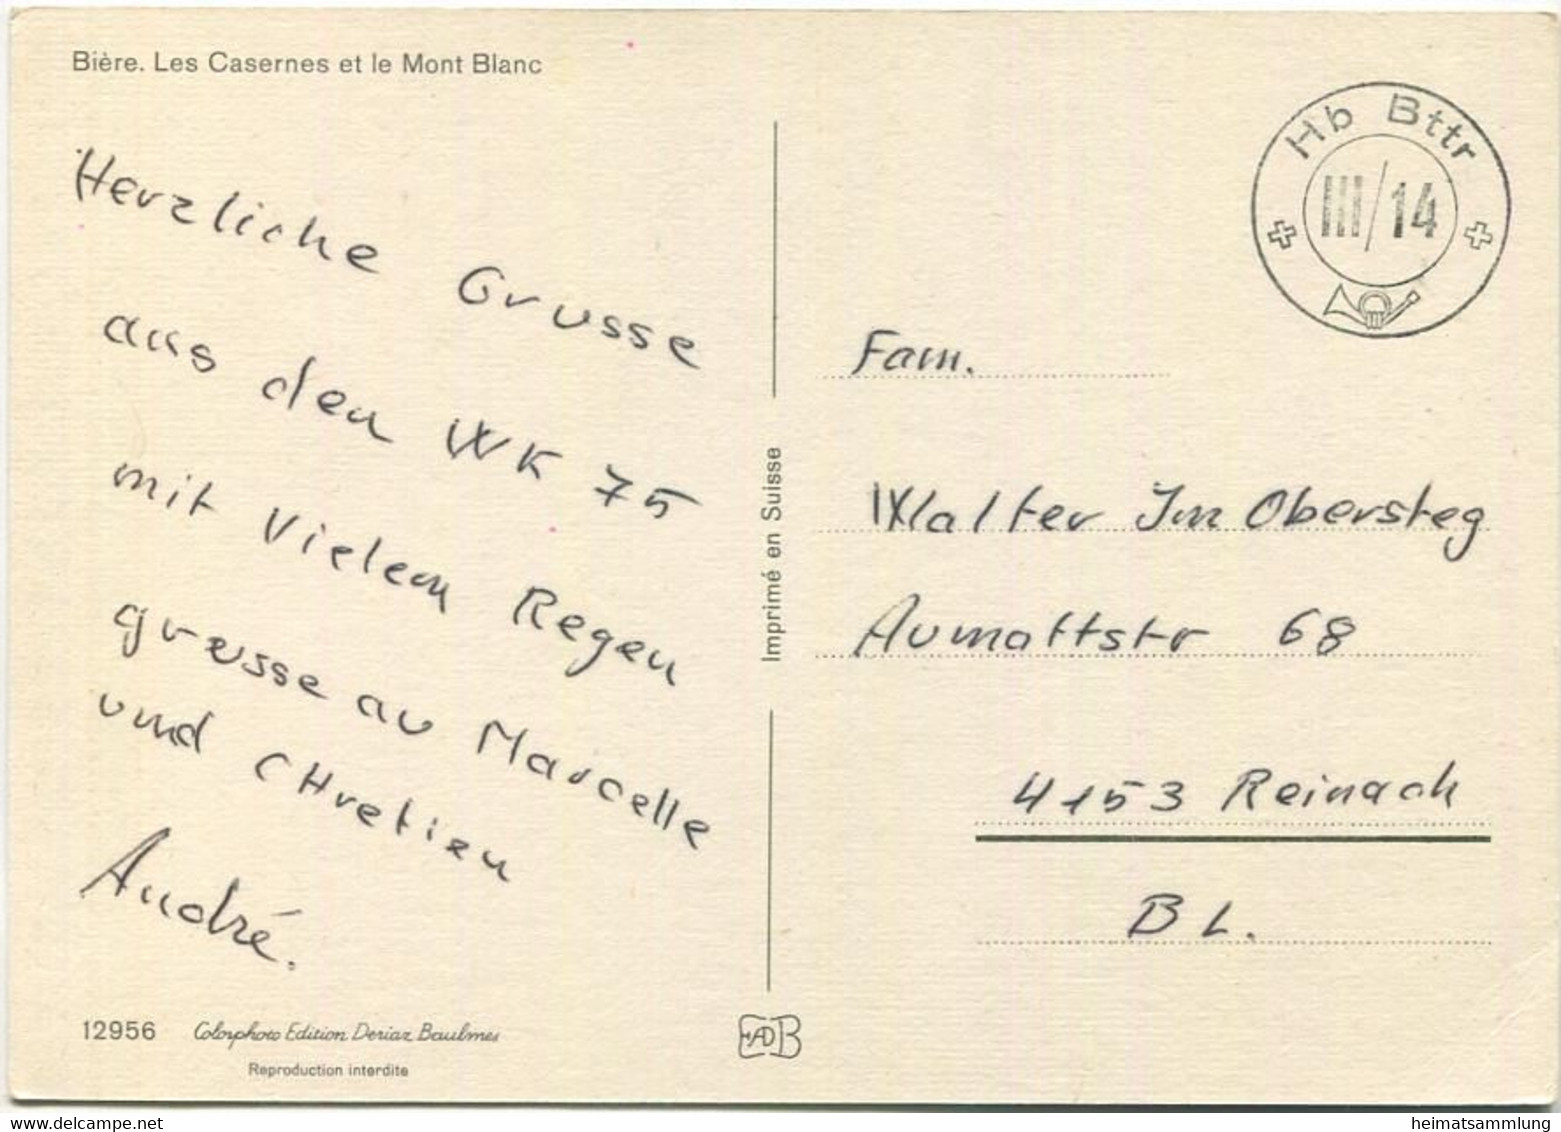 Bière. Les Casernes et le Mont Blanc
Herzliche Grusse
aus den WK 75
mit Vielem Regen
grusse au Marcelle
und CHretien
André.
12956 Colorphoto Edition Deriaz Baulmes
Reproduction interdite
Imprimé en Suisse
EADB
Hb Bttr
III/14
Fam.
Walter Im Obersteg
Aumattstr 68
4153 Reinach
BL.
heimatsammlung